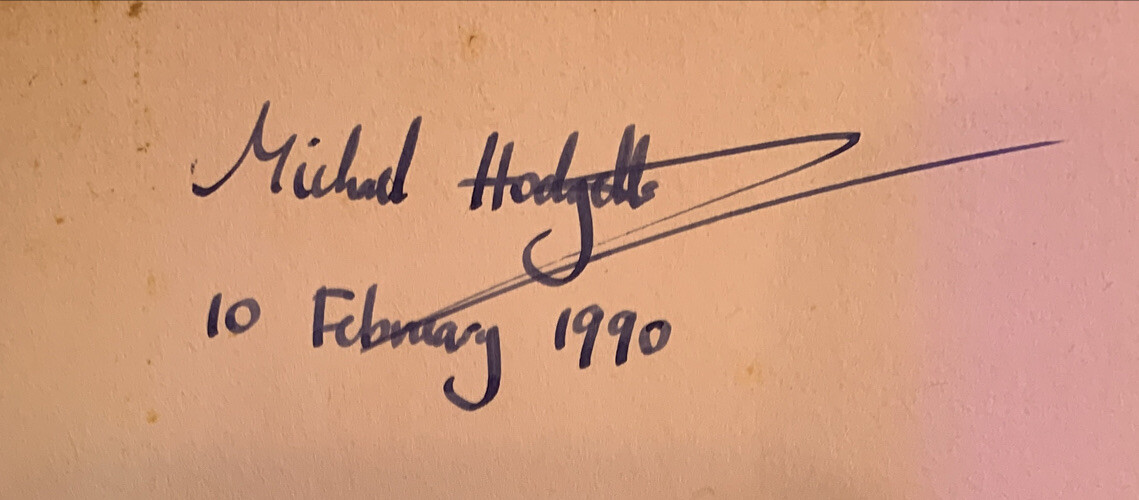 Michael Hodgetts
10 February 1990